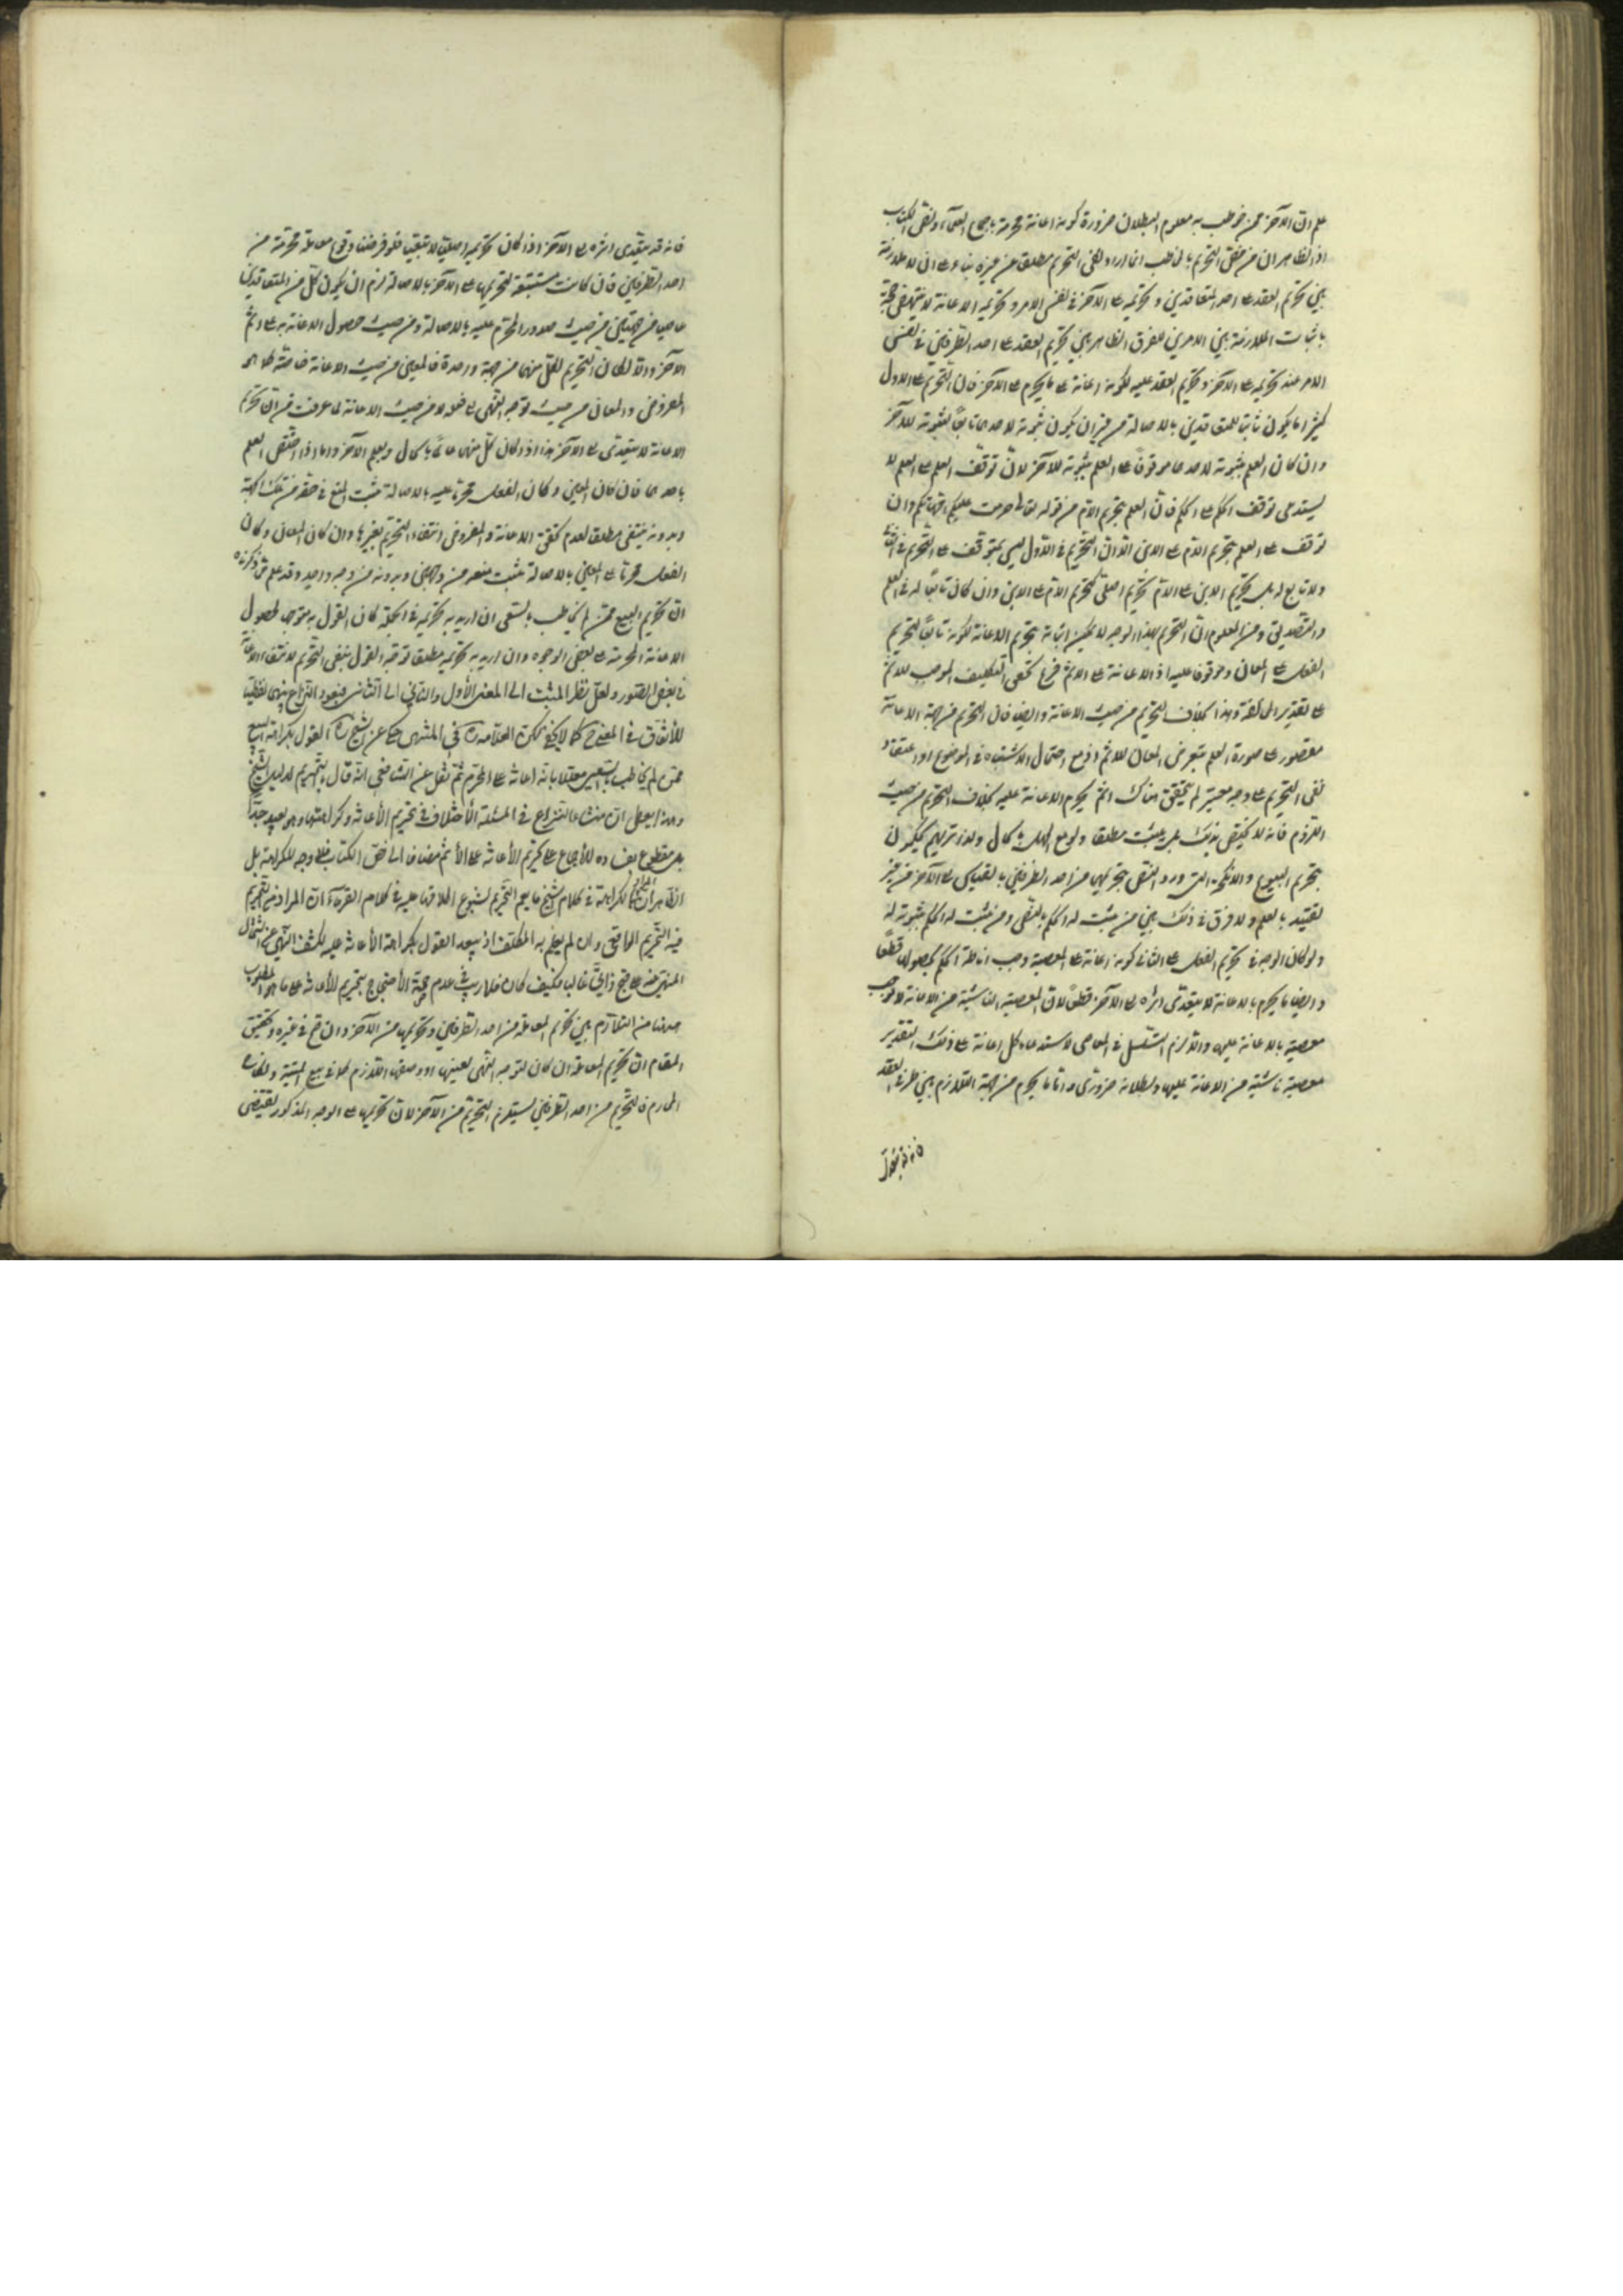 علم ان الآخر ممن خوطب به معلوم البطلان ضرورة كونه اعانة محرمة باجماع العلماء ونص الكتاب
اذ الظاهر ان من خص التحريم بالمخاطب انما اراد نفى التحريم مطلقا عن غيره بناء على ان لا ملازمة
بين تحريم العقد على احد المتعاقدين وتحريمه على الآخر فى نفس الامر وتحريم الاعانة لا ينتهض حجة
باثبات الملازمة بين الامرين للفرق الظاهر بين تحريم العقد على احد الطرفين فى نفس
الامر عند تحريمه على الآخر وتحريم العقد عليه لكونه اعانة على ما يحرم على الآخر فان التحريم على الاول
كثيرا ما يكون ثابتا للمتعاقدين بالاصالة من غير ان يكون ثبوته لاحدهما تابعا لثبوته للآخر
وان كان العلم بثبوته لاحدهما موقوفا على العلم بثبوته للآخر لان توقف العلم على العلم لا
يستدعى توقف الحكم على الحكم فان العلم بتحريم الام من قوله تعالى حرمت عليكم امهاتكم وان
توقف على العلم بتحريم الام على الابن الا ان التحريم فى الاول ليس بمتوقف على التحريم فى الثانى
ولا تابع له بل تحريم الابن على الام تحريم اصلى كتحريم الام على الابن وان كان تابعا له فى العلم
والتصديق ومن المعلوم ان التحريم بهذا الوجه لا يمكن اثباته بتحريم الاعانة لكونه تابعا لتحريم
الفعل على المعان وموقوفا عليه اذ الاعانة على الاثم فرع تحقق التكليف الموجب للاثم
على تقدير المخالفة وهذا بخلاف التحريم من حيث الاعانة وايضا فان التحريم من جهة الاعانة
مقصور على صورة العلم بتعرض المعان للاثم اذ مع احتمال الاشتباه فى الموضوع او اعتقاد
نفى التحريم على وجه معتبر لم يتحقق هناك اثم يحرم الاعانة عليه بخلاف التحريم من حيث
اللزوم فانه لا يختص بذلك بل يثبت مطلقا ولو مع الجهل بالحال ولذا تريهم يحكمون
بتحريم البيوع والانكحة التى ورد النص بتحريمها من احد الطرفين بالقياس الى الآخر من غير
تقييد بالعلم ولا فرق فى ذلك بين من يثبت له الحكم بالنص ومن يثبت له الحكم بثبوته له
ولو كان الوجه فى تحريم الفعل على الثانى كونه اعانة على المعصية وجب اناطة الحكم بحصولها قطعا
وايضا ما يحرم بالاعانة لا يتعدى اثره الى الآخر قطعا لان المعصية الناشية من الاعانة لا توجب
معصية بالاعانة عليها والا لزم التسلسل فى المعاصى لاستدعاء كل اعانة على ذلك التقدير
معصية ناشية من الاعانة عليها وبطلانه ضرورى واما ما يحرم من جهة التلازم بين طرفى العقد
فانه قد يتعدى
فانه قد يتعدى اثره الى الآخر اذا كان تحريمه اصليا لا تبعيا فلو فرضنا وقوع معاملة محرمة من
احد الطرفين فان كانت مستتبعة لتحريمها على الآخر بالاصالة لزم ان يكون كل من المتعاقدين
عاصيا من جهتين من حيث صدور المحرم عليه بالاصالة ومن حيث حصول الاعانة به على اثم
الآخر والا لكان التحريم لكل منهما من جهة واحدة فالمعين من حيث الاعانة خاصة كما هو
المفروض والمعان من حيث توجه النهى الى فعله لا من حيث الاعانة لما عرفت من ان تحريم
الاعانة لا يتعدى الى الآخر هذا اذا كان كل منهما عالما بالحال وبعلم الآخر واما اذا اختص العلم
باحدهما فان كان المعين وكان الفعل محرما عليه بالاصالة ثبت المنع فى حقه من تلك الجهة
وبدونه ينتفى مطلقا لعدم تحقق الاعانة والمفروض انتفاء التحريم بغيرها وان كان المعان وكان
الفعل محرما على المعين بالاصالة يثبت منعه من وجهين وبدونه من وجه واحد وقد علم مما ذكرناه
ان تحريم البيع ممن لم يخاطب بالسعى ان اريد به تحريمه فى الجملة كان القول به متوجها لحصول
الاعانة المحرمة على بعض الوجوه وان اريد به تحريمه مطلقا توجه القول بنفى التحريم لانتفاء الاعانة
فى بعض الصور ولعل نظر المثبت الى المعنى الأول والنافى الى الثانى فيعود النزاع بينهما لفظيا
للأتفاق فى المعنى ح كما لا يخفى لكن العلامة ره فى المنتهى حكى عن الشيخ ره القول بكراهة البيع
ممن لم يخاطب بالسعى معللا بانه اعانة على المحرم ثم نقل عن الشافعى انه قال بالتحريم لدليل الشيخ
وهذا يعطى ان منشأ النزاع فى المسئلة الأختلاف فى تحريم الأعانة وكراهتها وهو بعيد جدا
بل مقطوع بفساده للأجماع على تحريم الأعانة على الأثم مضافا الى نص الكتاب فلا وجه للكراهة بل
الظاهر ان المراد بالكراهة فى كلام الشيخ ما يعم التحريم لشيوع اطلاقها عليه فى كلام القدماء او ان المراد من التحريم
فيه التحريم الواقعى وان لم يعلم به المكلف اذ يبعد القول بكراهة الأعانة عليه لكشف النهى عن اشتمال
المنهى عنه على قبح ذاتى غالبا وكيف كان فلا ريب فى عدم صحة الأحتجاج بتحريم الأعانة على ما هو المطلوب
هيهنا من التلازم بين تحريم المعاملة من احد الطرفين وتحريمها من الآخر وان تم فى غيره وتحقيق
المقام ان تحريم المعاملة ان كان لتوجه النهى بعينها او وصفها اللازم كما فى بيع الميتة ونكاح
المحارم فالتحريم من احد الطرفين يستلزم التحريم من الآخر لان تحريمها على الوجه المذكور يقتضى